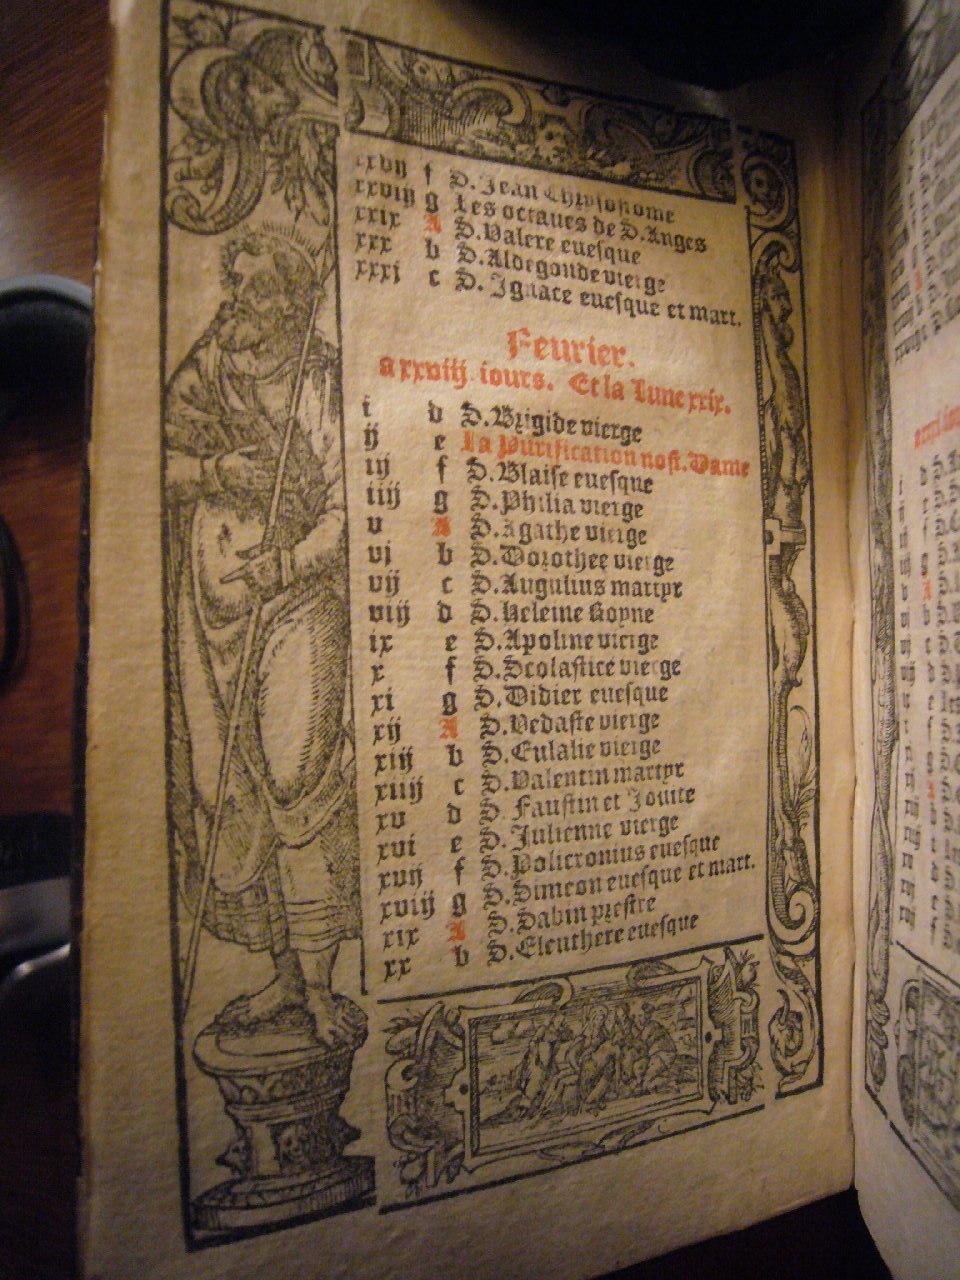 xxvij f S. Jean Chrysostome
xxviij g Les octaues de S. Anges
xxix A S. Valere euesque
xxx b S. Aldegonde vierge
xxxi c S. Ignace euesque et mart.
Feurier.
a xxviij iours. Et la Lune xxix.
i d S. Brigide vierge
ij e La Purification nost. Dame
iij f S. Blaise euesque
iiij g S. Philia vierge
v A S. Agathe vierge
vi b S. Dorothee vierge
vij c S. Augulius martyr
viij d S. Heleine Royne
ix e S. Apoline vierge
x f S. Scolastice vierge
xi g S. Didier euesque
xij A S. Vedaste vierge
xiij b S. Eulalie vierge
xiiij c S. Valentin martyr
xv d S. Faustin et Iouite
xvi e S. Julienne vierge
xvij f S. Policronius euesque
xviij g S. Simeon euesque et mart.
xix A S. Sabin prestre
xx b S. Eleuthere euesque